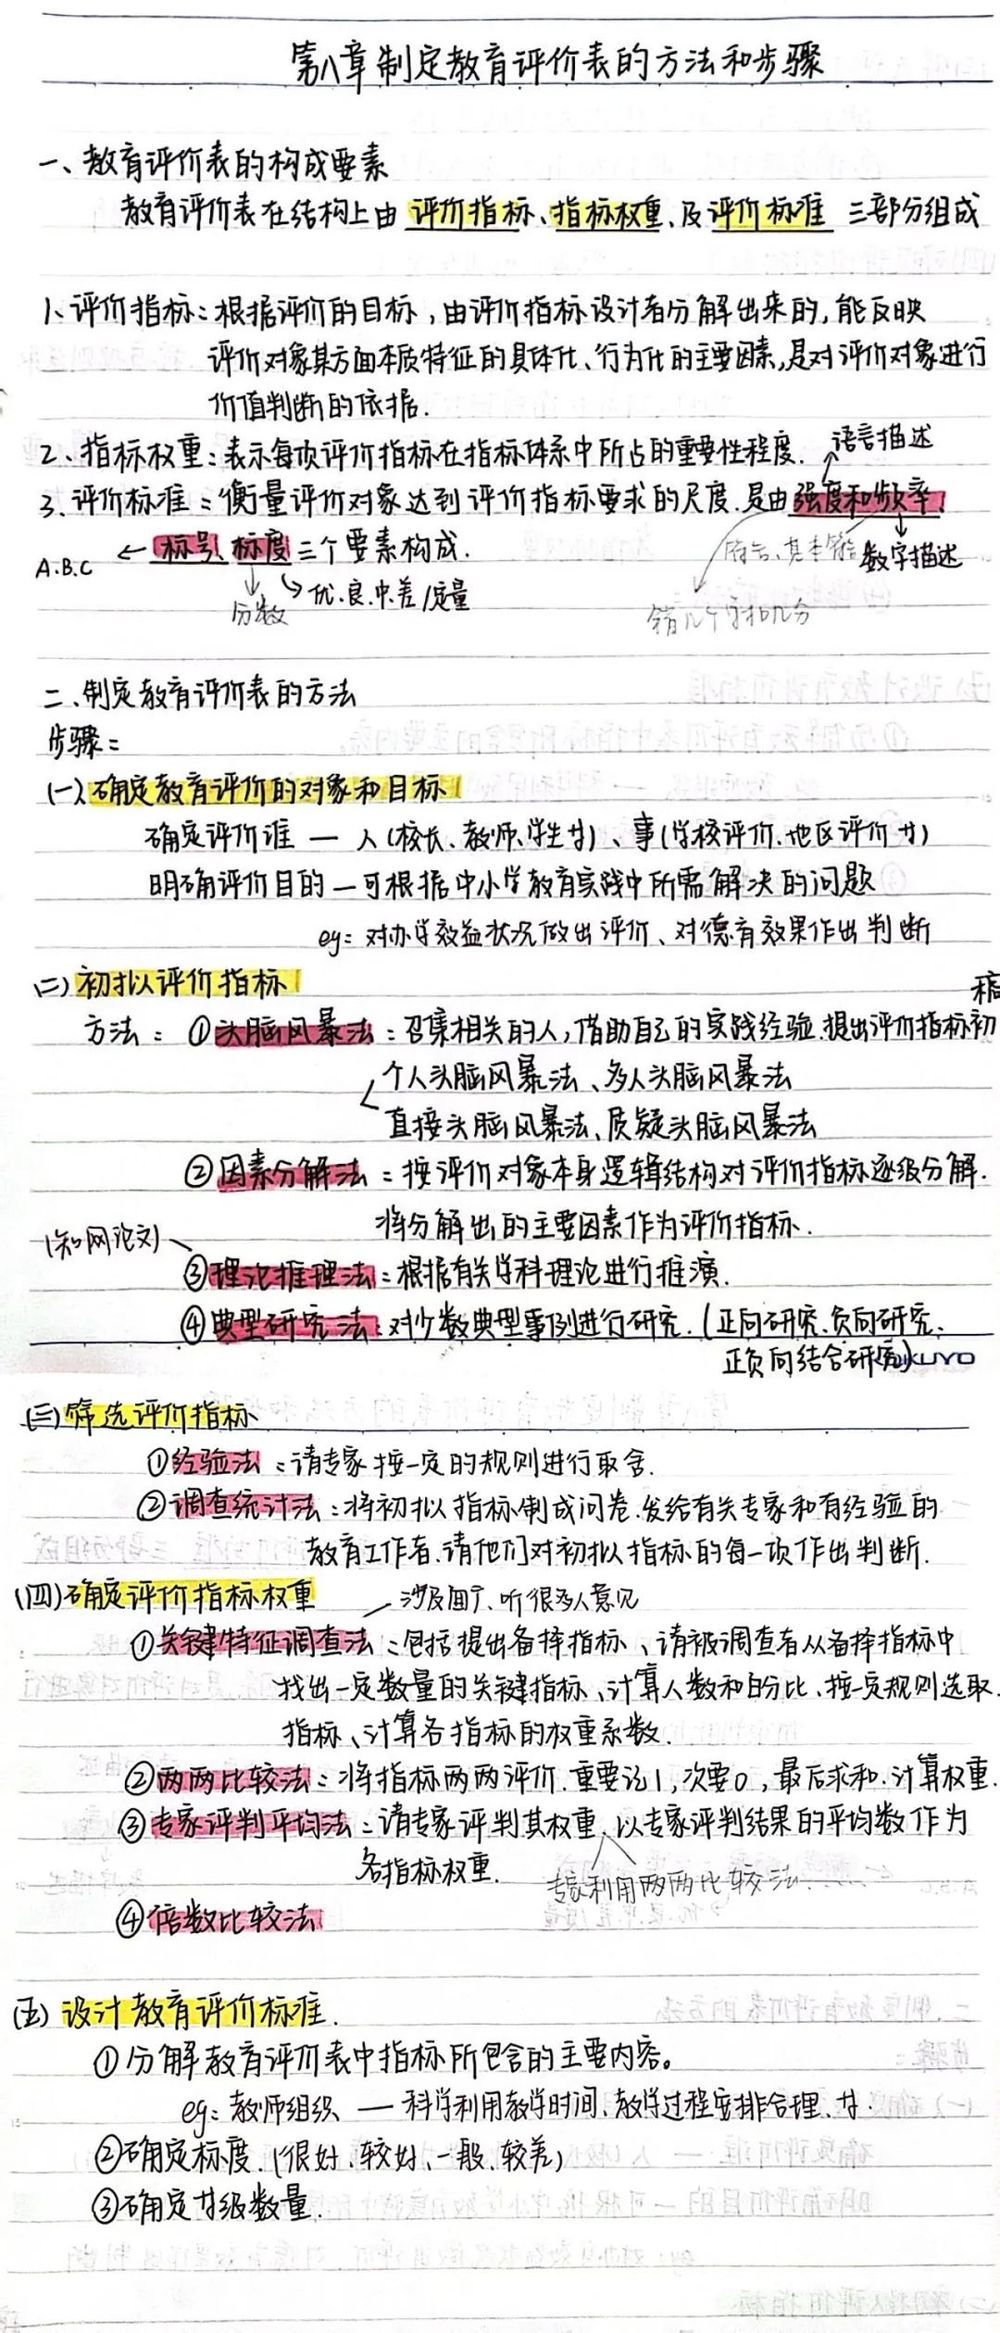 第八章 制定教育评价表的方法和步骤
一、教育评价表的构成要素
教育评价表在结构上由评价指标、指标权重、及评价标准 三部分组成
1、评价指标：根据评价的目标，由评价指标设计者分解出来的，能反映
评价对象某方面本质特征的具体化、行为化的主要因素，是对评价对象进行
价值判断的依据.
2、指标权重：表示每项评价指标在指标体系中所占的重要性程度.
语言描述
3、评价标准：衡量评价对象达到评价指标要求的尺度.是由强度和频率、
A.B.C ← 标号、标度三个要素构成.
数字描述
分数 优.良.中.差/定量
错几个字扣几分
二、制定教育评价表的方法
步骤：
(一)确定教育评价的对象和目标
确定评价谁 — 人(校长、教师、学生等)、事(学校评价、地区评价等)
明确评价目的 — 可根据中小学教育实践中所需解决的问题
eg：对办学效益状况做出评价、对德育效果作出判断
(二)初拟评价指标
方法：①头脑风暴法：召集相关的人，借助自己的实践经验.提出评价指标初稿
个人头脑风暴法、多人头脑风暴法
直接头脑风暴法、质疑头脑风暴法
②因素分解法：按评价对象本身逻辑结构对评价指标逐级分解.
将分解出的主要因素作为评价指标.
(知网论文)
③理论推理法：根据有关学科理论进行推演.
④典型研究法：对少数典型事例进行研究.(正向研究、负向研究、
正负向结合研究)
KOKUYO
(三)筛选评价指标
①经验法：请专家按一定的规则进行取舍.
②调查统计法：将初拟指标制成问卷.发给有关专家和有经验的
教育工作者.请他们对初拟指标的每一项作出判断.
(四)确定评价指标权重
涉及面广、听很多人意见
①关键特征调查法：包括提出备择指标、请被调查者从备择指标中
找出一定数量的关键指标、计算人数和百分比、按一定规则选取
指标、计算各指标的权重系数.
②两两比较法：将指标两两评价.重要记1，次要0，最后求和.计算权重.
③专家评判平均法：请专家评判其权重.以专家评判结果的平均数作为
各指标权重.
专家利用两两比较法
④倍数比较法
(五)设计教育评价标准.
①分解教育评价表中指标所包含的主要内容。
eg：教师组织 — 科学利用教学时间、教学过程安排合理.等.
②确定标度.(很好、较好、一般、较差)
③确定等级数量.